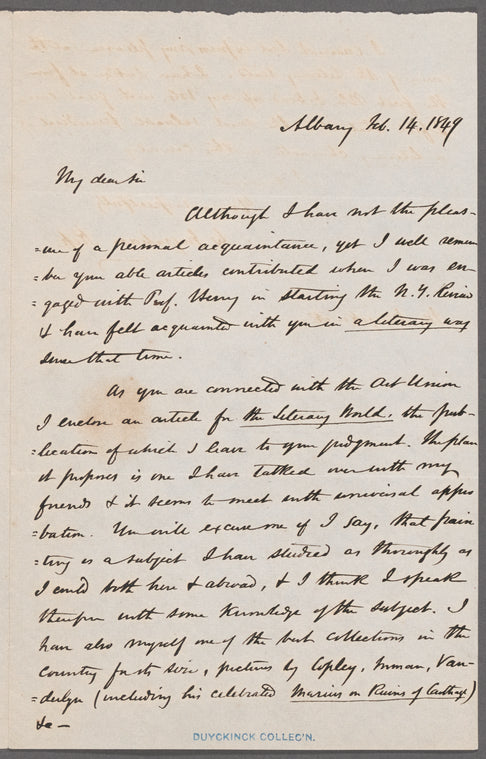 Albany Feb. 14. 1849
My dear Sir
Although I have not the pleas-
=ure of a personal acquaintance, yet I well remem
=ber your able articles contributed when I was en-
=gaged with Prof. Henry in starting the N. Y. Review
& have felt acquainted with you in a literary way
since that time.
As you are connected with the Art Union
I enclose an article for the Literary World, the pub-
=lication of which I leave to your judgment. The plan
it proposes is one I have talked over with my
friends & it seems to meet with universal appro
=bation. You will excuse me if I say, that pain
=ting is a subject I have studied as thoroughly as
I could both here & abroad, & I think I speak
therefore with some knowledge of the subject. I
have also myself one of the best collections in the
country for its size, pictures by Copley, Inman, Van-
=derlyn (including his celebrated Marius on Ruins of Carthage)
&c —
DUYCKINCK COLLEC'N.